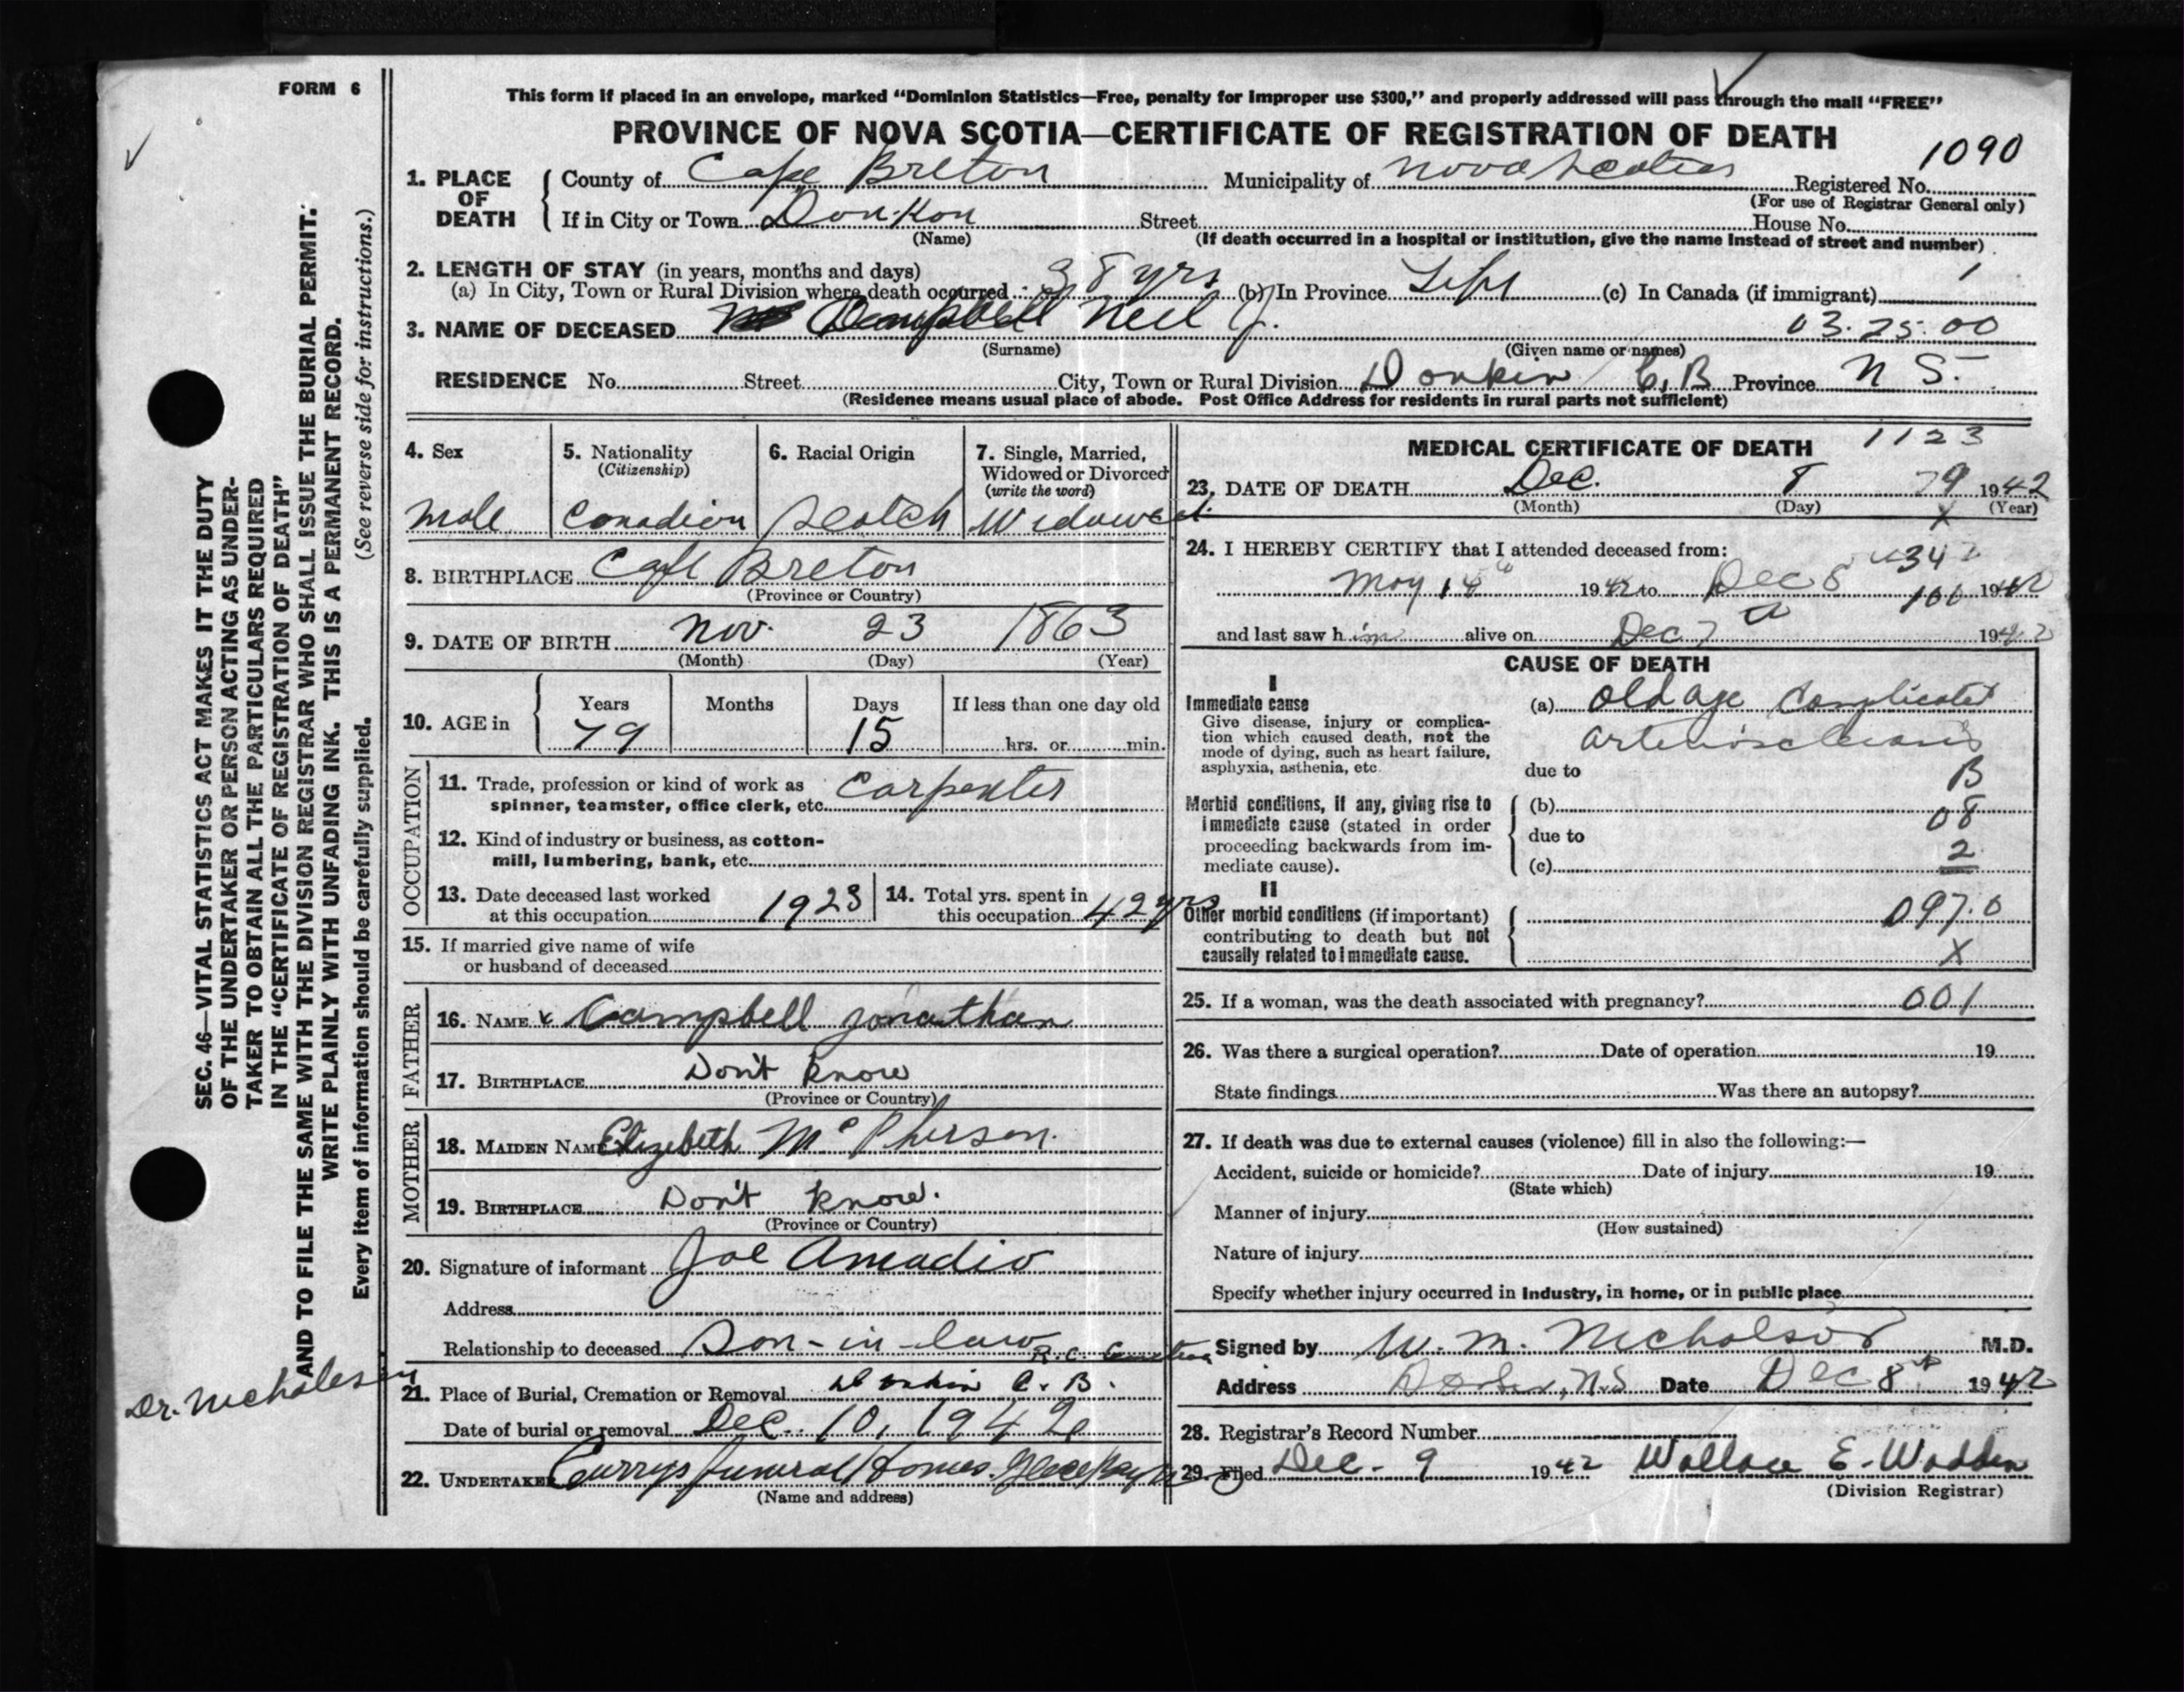 FORM 6
This form if placed in an envelope, marked “Dominion Statistics—Free, penalty for improper use $300,” and properly addressed will pass through the mail “FREE”
PROVINCE OF NOVA SCOTIA—CERTIFICATE OF REGISTRATION OF DEATH
1090
1. PLACE OF DEATH
County of Cape Breton Municipality of Nova Scotia Registered No.
(For use of Registrar General only)
If in City or Town Donkon Street House No.
(Name) (If death occurred in a hospital or institution, give the name instead of street and number)
2. LENGTH OF STAY (in years, months and days)
(a) In City, Town or Rural Division where death occurred 38 yrs (b) In Province Life (c) In Canada (if immigrant)
3. NAME OF DECEASED Campbell Neil J. 03.25.00
(Surname) (Given name or names)
RESIDENCE No. Street City, Town or Rural Division Donkin C.B Province N S.
(Residence means usual place of abode. Post Office Address for residents in rural parts not sufficient)
4. Sex
male
5. Nationality
(Citizenship)
Canadian
6. Racial Origin
Scotch
7. Single, Married,
Widowed or Divorced
(write the word)
Widowed.
8. BIRTHPLACE Cape Breton
(Province or Country)
9. DATE OF BIRTH Nov. 23 1863
(Month) (Day) (Year)
10. AGE in
Years Months Days If less than one day old
79 15 hrs. or min.
OCCUPATION
11. Trade, profession or kind of work as
spinner, teamster, office clerk, etc. Carpenter
12. Kind of industry or business, as cotton-
mill, lumbering, bank, etc.
13. Date deceased last worked
at this occupation 1923
14. Total yrs. spent in
this occupation 42 yrs
15. If married give name of wife
or husband of deceased
FATHER
16. NAME Campbell Jonathan
17. BIRTHPLACE Don't know
(Province or Country)
MOTHER
18. MAIDEN NAME Elizebeth McPherson.
19. BIRTHPLACE Don't know.
(Province or Country)
20. Signature of informant Joe Amadio
Address
Relationship to deceased Son-in-law
R.C. Cemetery
21. Place of Burial, Cremation or Removal Donkin C.B.
Date of burial or removal Dec. 10, 1942
22. UNDERTAKER Currys Funeral Homes. Glace Bay
(Name and address)
MEDICAL CERTIFICATE OF DEATH 1123
23. DATE OF DEATH Dec. 8 79 1942
(Month) (Day) X (Year)
24. I HEREBY CERTIFY that I attended deceased from:
May 14 1942 to Dec 8 1942
and last saw him alive on Dec 7 1942
CAUSE OF DEATH
I
Immediate cause
Give disease, injury or complica-
tion which caused death, not the
mode of dying, such as heart failure,
asphyxia, asthenia, etc.
(a) Old age Complicated
arteriosclerosis
due to B
Morbid conditions, if any, giving rise to
immediate cause (stated in order
proceeding backwards from im-
mediate cause).
(b) 08
due to
2
(c)
II
Other morbid conditions (if important)
contributing to death but not
causally related to immediate cause.
097.0
X
25. If a woman, was the death associated with pregnancy? 001
26. Was there a surgical operation? Date of operation 19
State findings Was there an autopsy?
27. If death was due to external causes (violence) fill in also the following:—
Accident, suicide or homicide? Date of injury 19
(State which)
Manner of injury
(How sustained)
Nature of injury
Specify whether injury occurred in Industry, in home, or in public place
Signed by W. M. Nicholson M.D.
Address N.S Date Dec 8th 1942
28. Registrar's Record Number
29. Filed Dec. 9 1942 Wallace E. Wadden
(Division Registrar)
SEC. 46—VITAL STATISTICS ACT MAKES IT THE DUTY
OF THE UNDERTAKER OR PERSON ACTING AS UNDER-
TAKER TO OBTAIN ALL THE PARTICULARS REQUIRED
IN THE “CERTIFICATE OF REGISTRATION OF DEATH”
AND TO FILE THE SAME WITH THE DIVISION REGISTRAR WHO SHALL ISSUE THE BURIAL PERMIT.
WRITE PLAINLY WITH UNFADING INK. THIS IS A PERMANENT RECORD.
Every item of information should be carefully supplied. (See reverse side for instructions.)
Dr. Nicholson